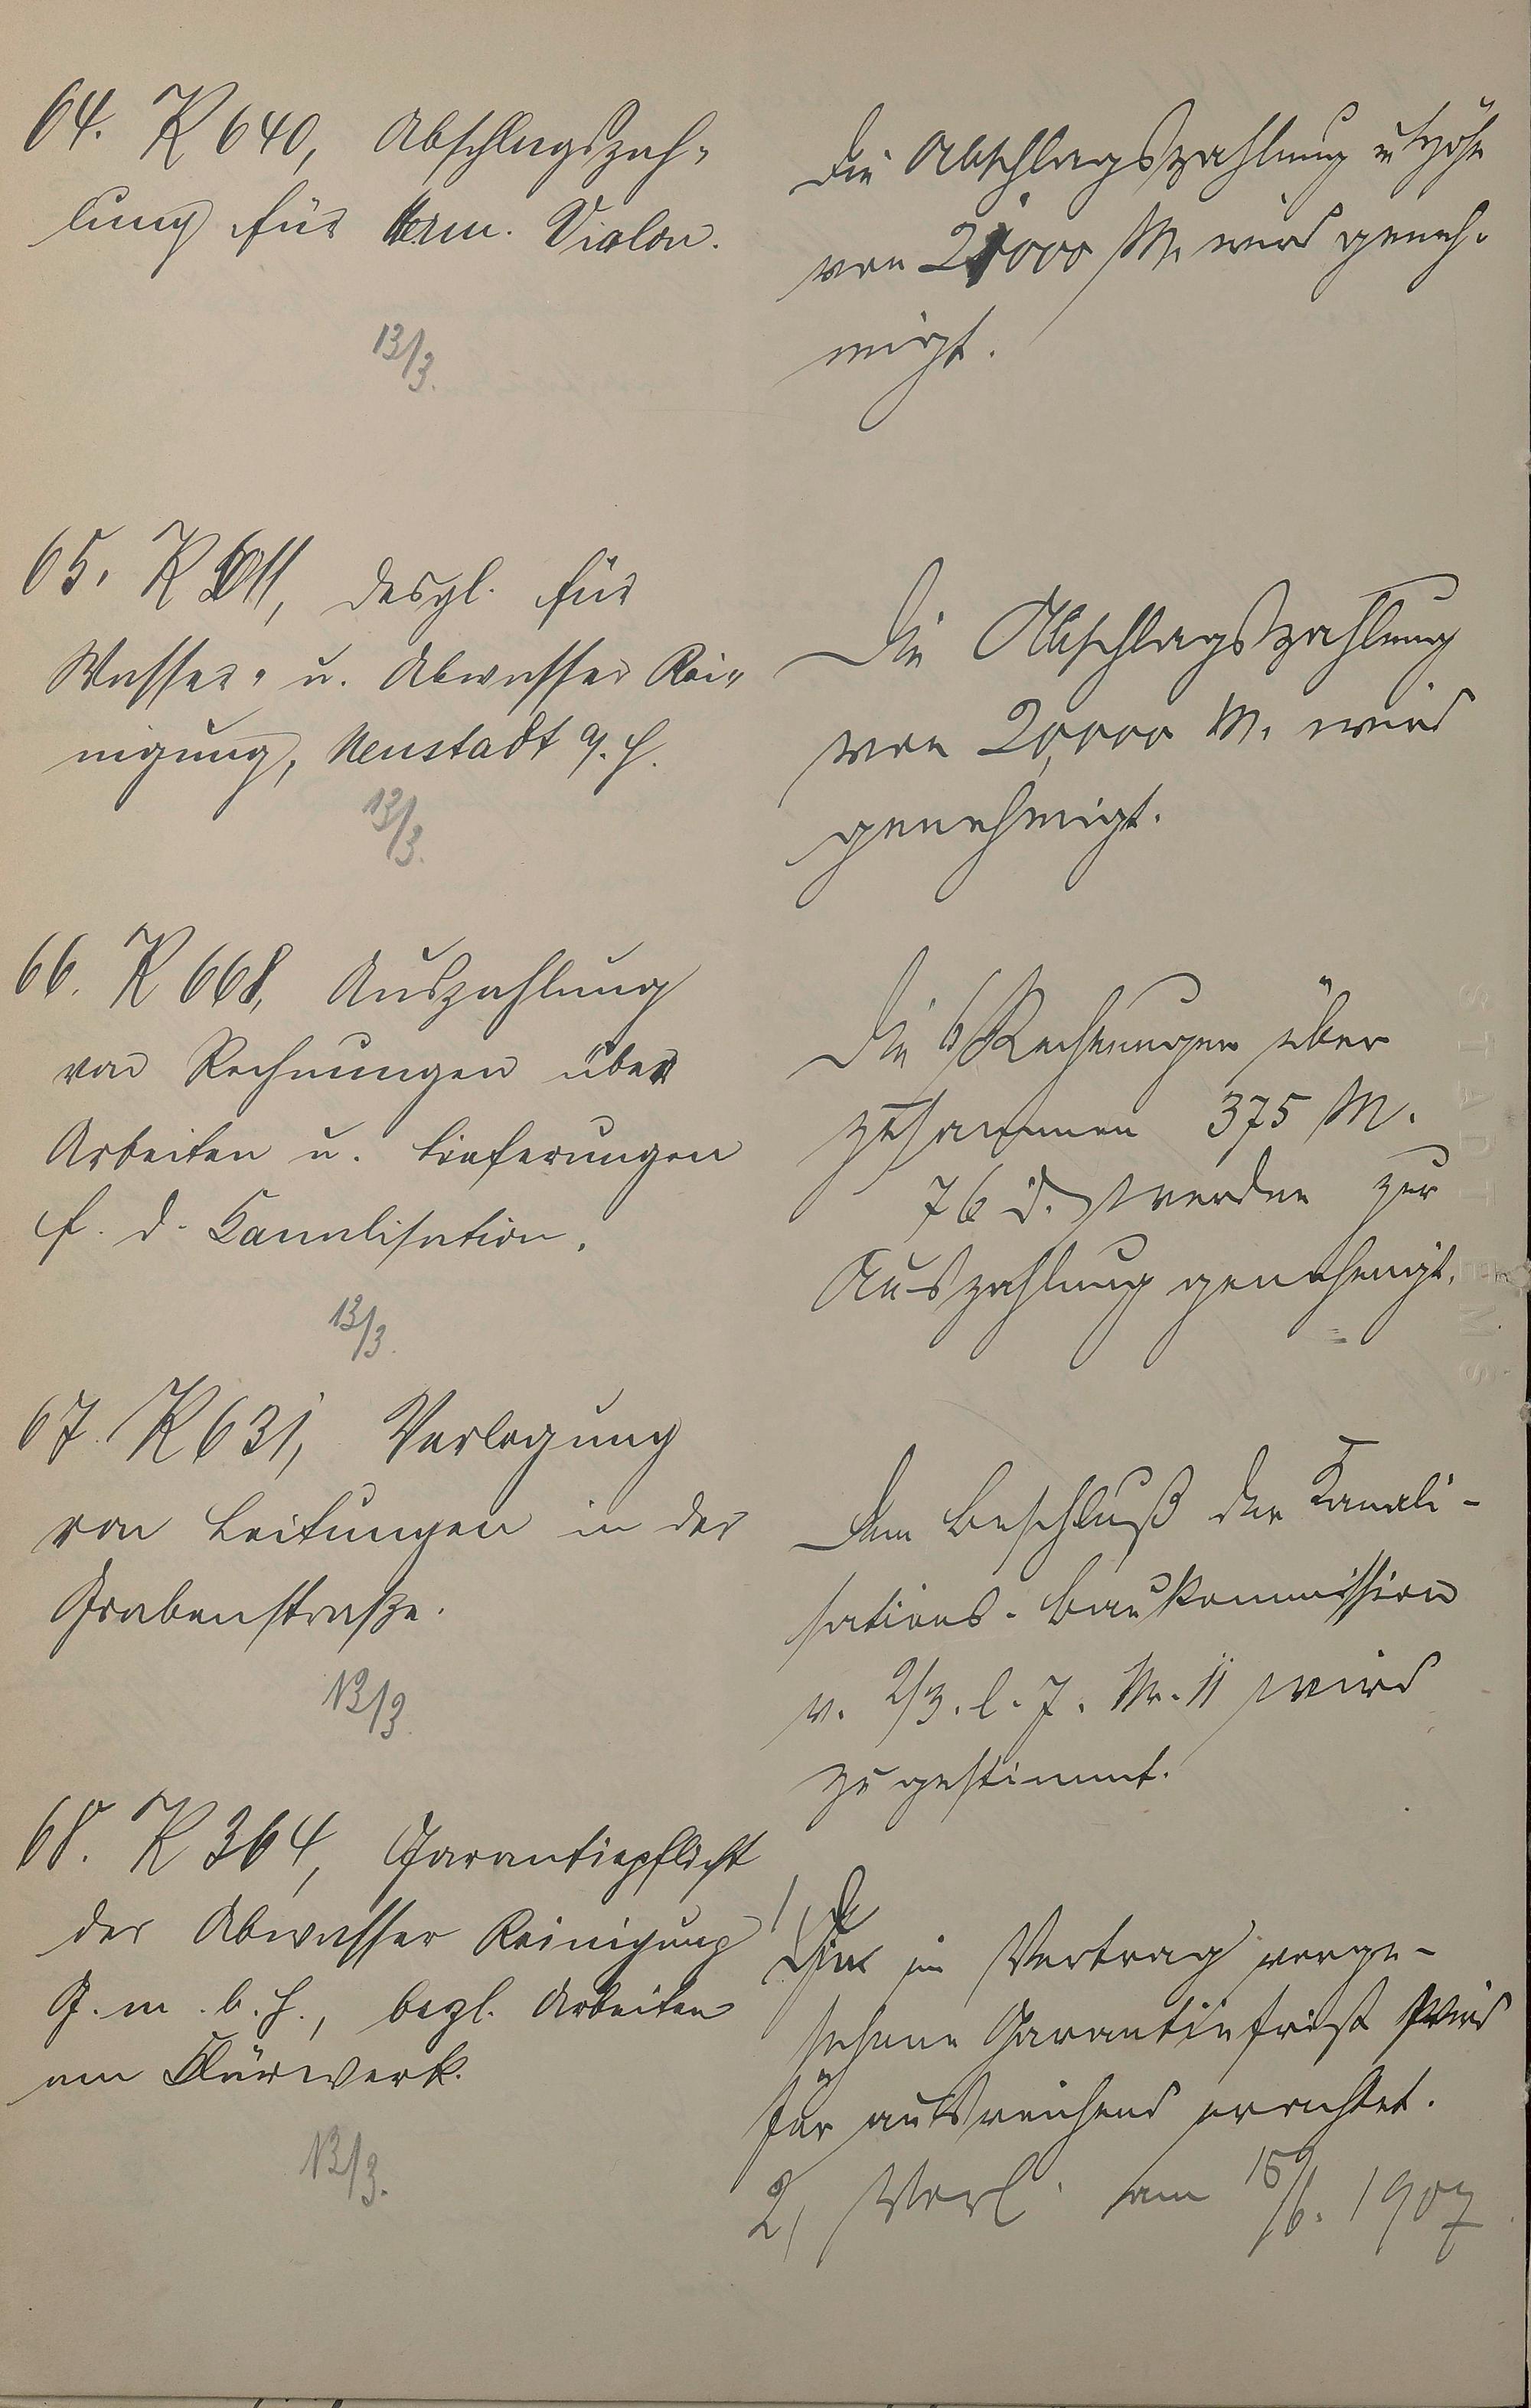 64. K 640, Abschlagszah-
lung für Herm. Violon.
13/3.
Die Abschlagszahlung in Höhe
von 21000 M. wird geneh-
migt.
65. K 611, desgl. für
Wasser- u. Abwasser Rei-
nigung, Neustadt a. H.
13/3.
Die Abschlagszahlung
von 20,000 M. wird
genehmigt.
66. K 668, Auszahlung
von Rechnungen über
Arbeiten u. Lieferungen
f. d. Kanalisation.
13/3.
Die 6 Rechnungen über
zusammen 375 M.
76 d. werden zur
Auszahlung genehmigt.
STADT EMS
67. K 631, Verlegung
von Leitungen in der
Grabenstraße.
13/3.
Dem Beschluß der Kanali-
sations-Baukommission
v. 2/3. l. J. Nr. 11 wird
zugestimmt.
68. K 364, Garantiepflicht
der Abwasser Reinigung
G. m. b. H., bezl. Arbeiten
am Klärwerk.
13/3.
1, Die im Vertrag vorge-
sehene Garantiefrist wird
für ausreichend erachtet.
2, Vorl. am 15/6. 1907